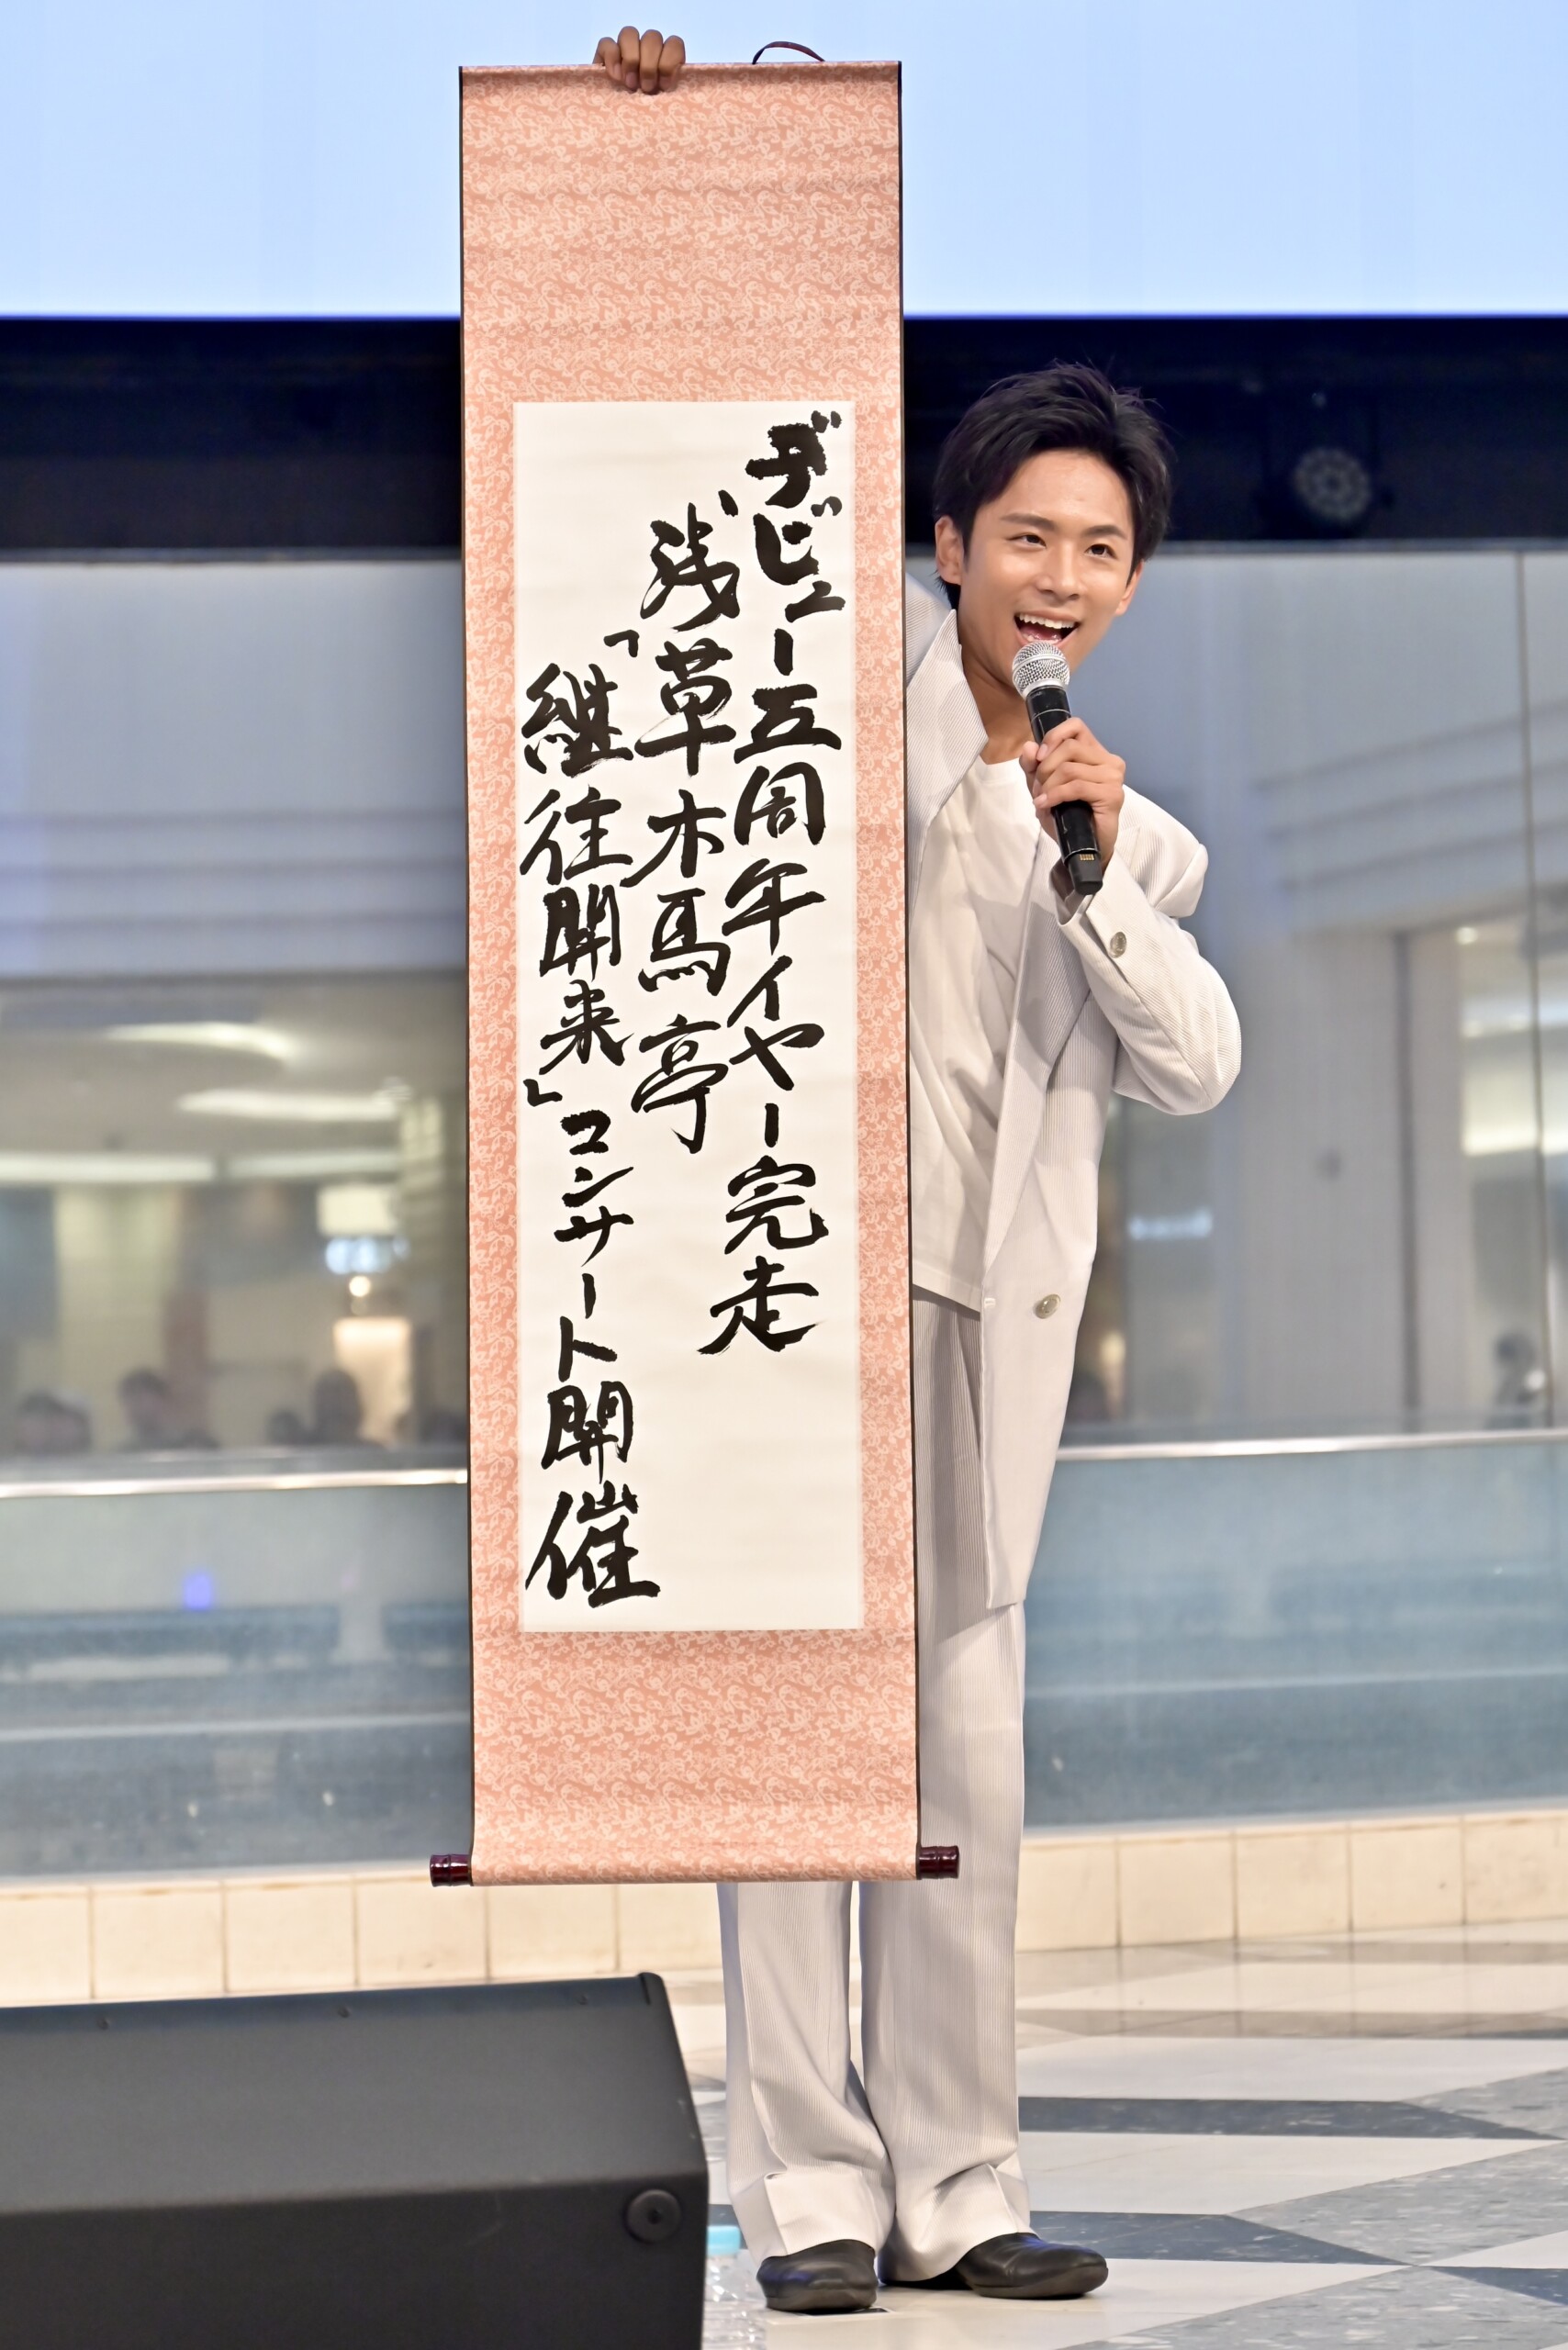 デビュー五周年イヤー完走
浅草木馬亭
「継往開来」コンサート開催